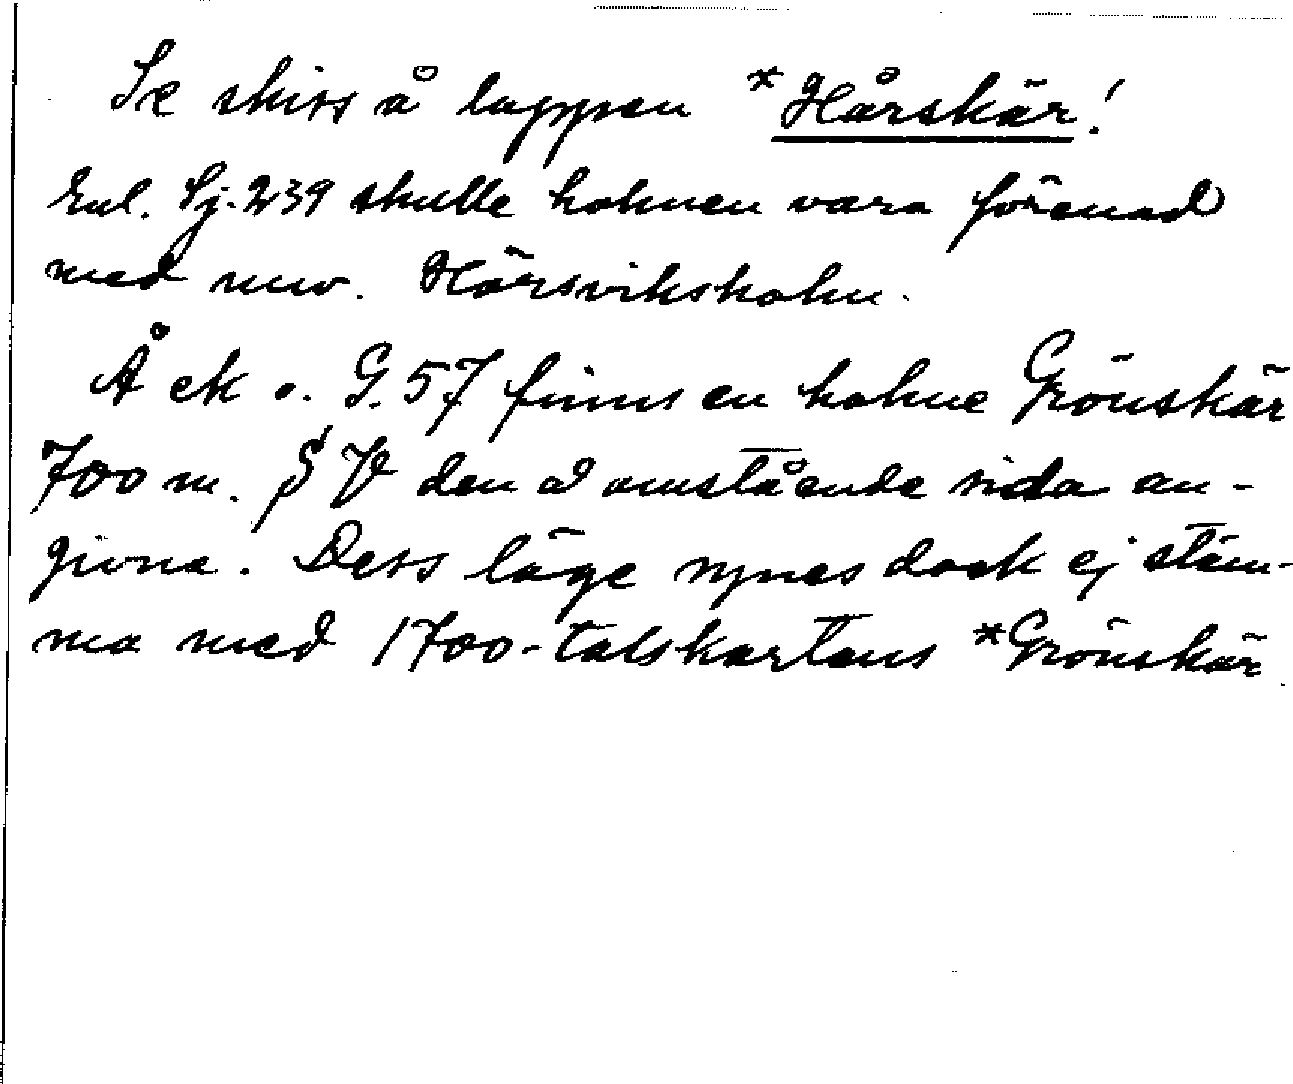 Se skiss å lappen *Hårskär!
Enl. Sj. 239 skulle holmen vara förenad
med nuv. Hörsviksholm.
Å ek o. G. 57 finns en holme Grönskär
700 m. S V den å omstående sida an-
givna. Dess läge synes dock ej stäm-
ma med 1700-talskartans *Grönskär